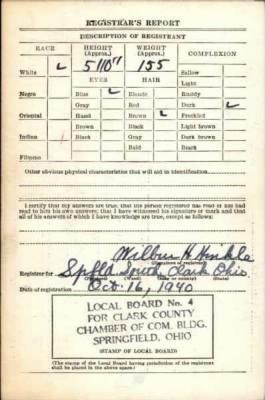 REGISTRAR'S REPORT
DESCRIPTION OF REGISTRANT
RACE HEIGHT (Approx.) WEIGHT (Approx.) COMPLEXION
5'10" 155
White Sallow
Light
EYES HAIR
Negro Blue Blonde Ruddy
Gray Red Dark
Oriental Hazel Brown Freckled
Brown Black Light brown
Indian Black Gray Dark brown
Bald Black
Filipino
Other obvious physical characteristics that will aid in identification
I certify that my answers are true; that the person registered has read or has had
read to him his own answers; that I have witnessed his signature or mark and that
all of his answers of which I have knowledge are true, except as follows:
Wilbur H. Hinkle
(Signature of registrar)
Registrar for Spfld South Clark Ohio
Date of registration Oct. 16, 1940
LOCAL BOARD No. 4
FOR CLARK COUNTY
CHAMBER OF COM. BLDG.
SPRINGFIELD, OHIO
(STAMP OF LOCAL BOARD)
(The stamp of the Local Board having jurisdiction of the registrant
shall be placed in the above space.)